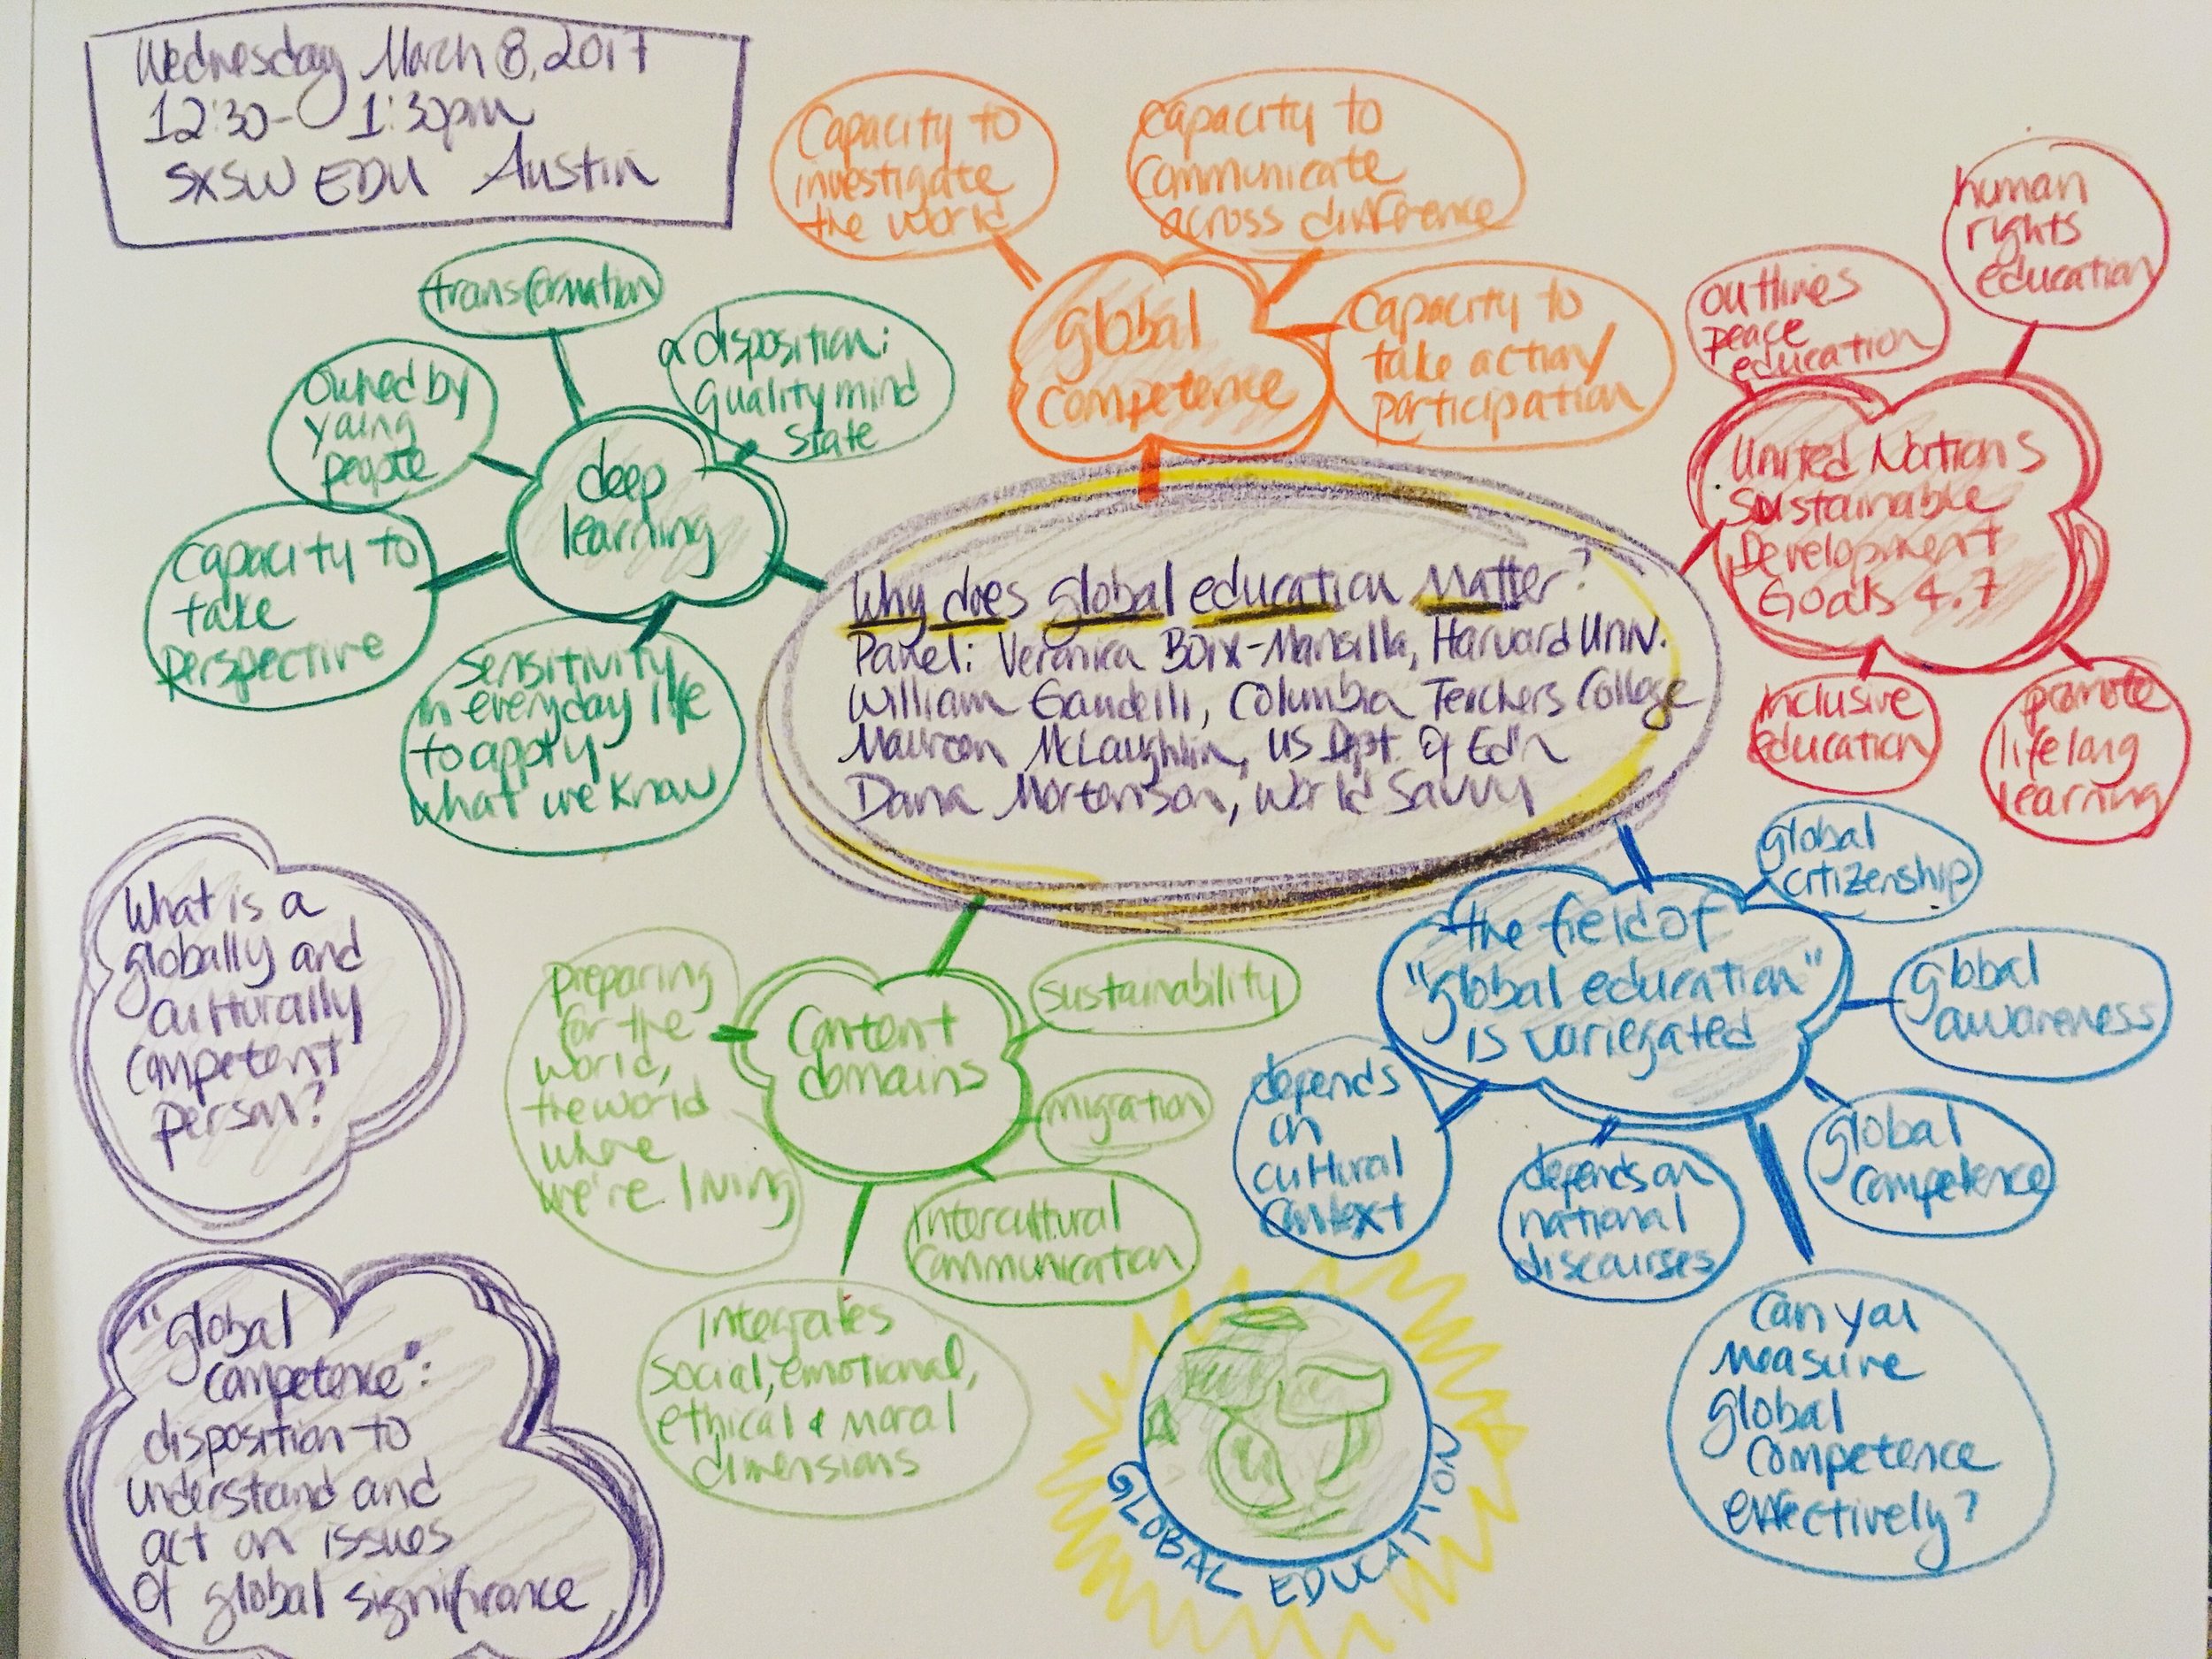 Wednesday March 8, 2017
12:30- 1:30pm
SXSW EDU Austin
transformation
a disposition:
quality mind
state
owned by
young
people
capacity to
take
perspective
sensitivity
in everyday life
to apply
what we know
deep
learning
Capacity to
investigate
the world
capacity to
communicate
across difference
Capacity to
take action/
participation
global
competence
human
rights
education
outlines
peace
education
United Nations
Sustainable
Development
Goals 4.7
inclusive
education
promote
lifelong
learning
Why does global education matter?
Panel: Veronica Boix-Mansilla, Harvard Univ.
William Gaudelli, Columbia Teachers College
Maureen McLaughlin, US Dpt. of Ed'n
Dana Mortenson, World Savvy
What is a
globally and
culturally
competent
person?
"global
competence":
disposition to
understand and
act on issues
of global significance
preparing
for the
world,
the world
where
we're living
Content
domains
sustainability
migration
intercultural
communication
Integrates
social, emotional,
ethical & moral
dimensions
the field of
"global education"
is variegated
global
citizenship
global
awareness
global
competence
depends
on
cultural
context
depends on
national
discourses
Can you
measure
global
competence
effectively?
GLOBAL EDUCATION